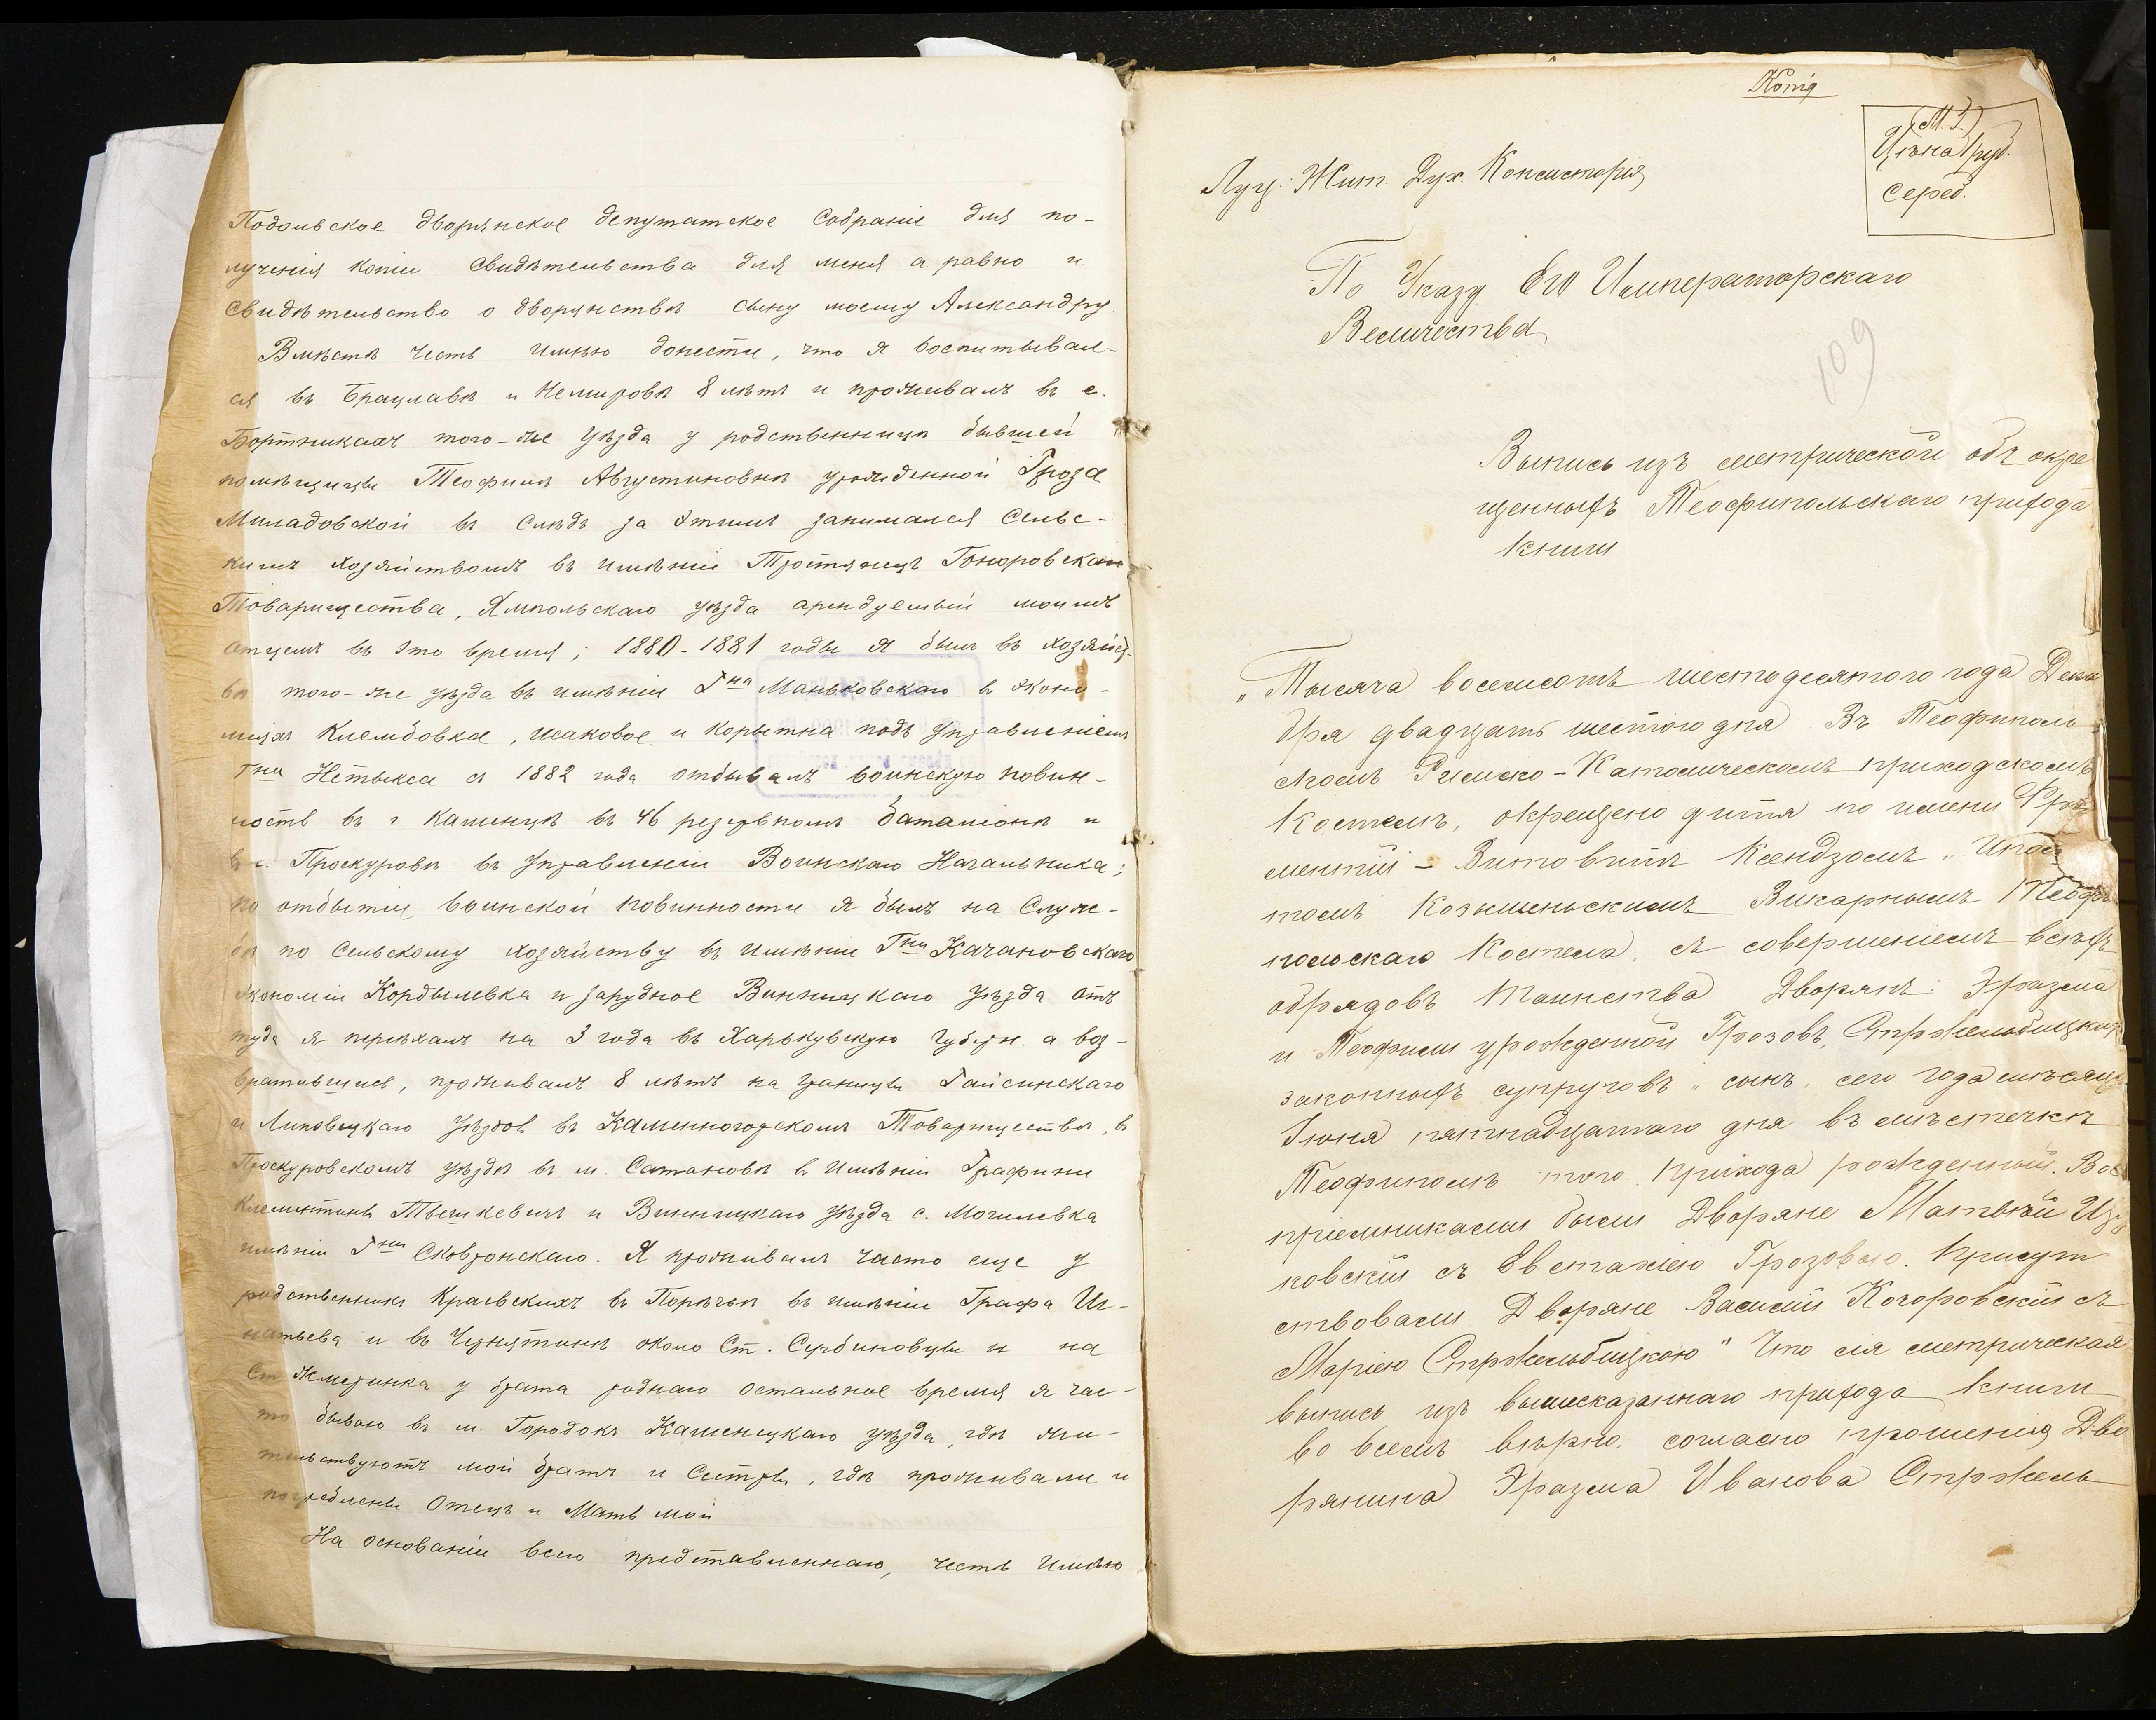 Подольское дворянское депутатское Собраніе для по-
лученія копіи свидѣтельства для меня а равно и
свидѣтельство о дворянствѣ сыну моему Александру.
Вмѣстѣ честь имѣю донести, что я воспитывал-
ся въ Брацлавѣ и Немировѣ 8 лѣтъ и проживалъ въ с.
Бортникахъ того-же уѣзда у родственницы бывшей
помѣщицы Теофили Августиновны урожденной Гроза
Миладовской въ слѣдъ за этимъ занимался Сельс-
кимъ хозяйствомъ въ имѣніи Тростянецъ Гоноровскаго
Товарищества, Ямпольскаго уѣзда арендуемый моимъ
отцемъ въ это время; 1880-1881 годы я былъ въ хозяйст-
вѣ того-же уѣзда въ имѣніи Гна Маньковскаго въ эконо-
міяхъ Клембовка, Исаковое и Корытна подъ управленіемъ
Гна Нетыкса съ 1882 года отбывалъ воинскую повин-
ность въ г. Каменцѣ въ 46 резервномъ баталіонѣ и
въ г. Проскуровѣ въ Управленіи Воинскаго Начальника;
по отбытіи воинской повинности я былъ на Служ-
бѣ по Сельскому хозяйству въ имѣніи Гна Качановскаго
экономіи Кордылевка и Зарудное Винницкаго уѣзда отъ
туда я переѣхалъ на 3 года въ Харьковскую Губерн. а воз-
вратившись, проживалъ 8 лѣтъ на границы Гайсинскаго
и Липовецкаго уѣздов въ Каменногорскомъ Товариществѣ, въ
Проскуровскомъ уѣздѣ въ м. Сатановѣ въ имѣніи Графини
Клементины Тышкевичъ и Винницкаго уѣзда с. Могилевка
имѣніи Гна Сковронскаго. Я проживалъ часто еще у
родственника Краевскихъ въ Порѣчьи въ имѣніи Графа Иг-
натьева и въ Чернятинѣ около Ст. Сербиновцы и на
Ст Жмеринка у брата роднаго остальное время я час-
то бываю въ м. Городокъ Каменецкаго уѣзда, гдѣ жи-
тельствуютъ мои братъ и Сестры, гдѣ проживали и
погребены Отецъ и Мать мои
На основаніи всего представленнаго, честь имѣю
Копія
(М.Г.)
Цѣна 1 руб.
серед.
Луц. Жит. Дух. Консисторія
По Указу Его Императорскаго
Величества
109
Выпись изъ метрической объ окре
щенныхъ Теофипольскаго прихода
книги
„Тысяча восемсотъ шестьдесятого года Декаб
бря двадцать шестого дня Въ Теофиполь
скомъ Римско-Католическомъ приходскомъ
Костелѣ, окрещено дитя по имени
ментій - Витовтъ Ксендзомъ
томъ Козьменьскимъ Викарнымъ Теофи
польскаго Костела, съ совершеніемъ всѣхъ
обрядовъ Таинства Дворянъ: Эразма
и Теофили урожденной Грозовъ, Стржельбицкихъ
законныхъ супруговъ „сынъ, сего года мѣсяца
Іюня пятнадцатаго дня въ мѣстечкѣ
Теофиполѣ того прихода рожденный. Вос
приемниками были Дворяне Матвѣй
ковскій съ Евстахіею Грозовою. Присут
ствовали Дворяне Василій Когоровскій съ
Маріею Стржельбицкою" Что сія метрическая
выпись изъ вышесказаннаго прихода книги
во всемъ вѣрно. согласно прошенія Дво
рянина Эразма Иванова Стржель